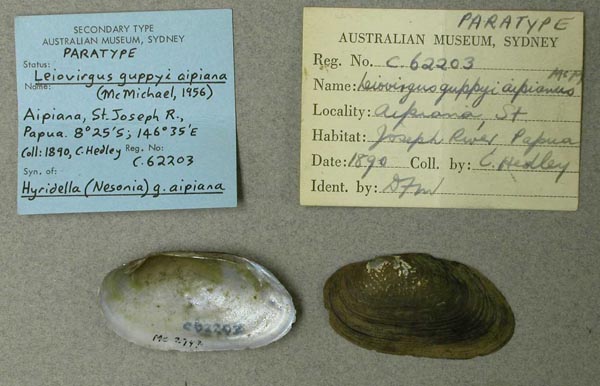 SECONDARY TYPE
AUSTRALIAN MUSEUM, SYDNEY
PARATYPE
Status:
Leiovirgus guppyi aipiana
Name:
(McMichael, 1956)
Aipiana, St. Joseph R.,
Papua. 8°25'S; 146°35'E
Coll: 1890, C. Hedley Reg. No:
C.62203
Syn. of:
Hyridella (Nesonia) g. aipiana
PARATYPE
AUSTRALIAN MUSEUM, SYDNEY
Reg. No. C.62203
Name: Leiovirgus guppyi aipianus
Locality: Aipiana, St
Habitat: Joseph River, Papua
Date: 1890 Coll. by: C. Hedley
Ident. by:
C62203